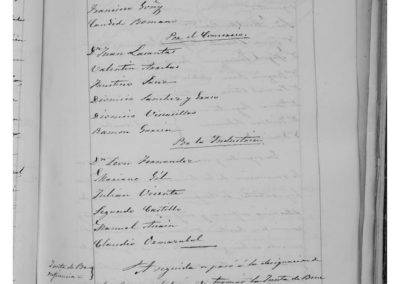 Francisco Gonz
Candido Roman
Por el Comercio
Dn Juan Lacintas
Valentin
Faustino Sanz
Dionicio Sanchez y
Dionicio Venacillas
Ramon Garcia
Por la Industria
Dn Leon Fernandez
Mariano Gil
Julian Vicente
Segundo Castillo
Manuel
Claudio
Junta de Be
neficencia
A seguida se pasó á la designacion de
la Junta de Bene